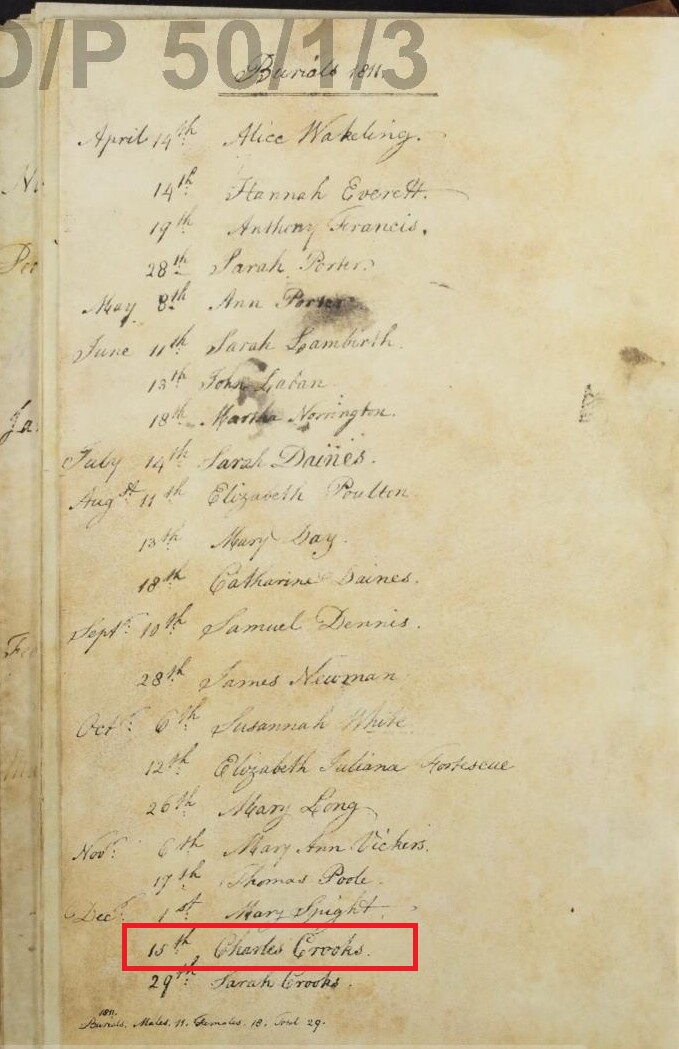 D/P 50/1/3
Burials 1811.
April 14th Alice Wakeling.
14th Hannah Everett.
19th Anthony Francis.
28th Sarah Porter.
May 8th Ann Porter
June 11th Sarah Lambirth.
13th John Laban
18th Martha Norrington.
July 14th Sarah Daines.
Augst 11th Elizabeth Poulton
13th Mary Day.
18th Catharine Daines.
Septr 10th Samuel Dennis.
28th James Newman
Octr 6th Susannah White
12th Elizabeth Juliana Fortescue
26th Mary Long
Novr 6th Mary Ann Vickers.
17th Thomas Poole.
Decr 1st Mary Spight.
15th Charles Crooks.
29th Sarah Crooks.
1811.
Burials. Males. 11. Females. 18. Total 29.